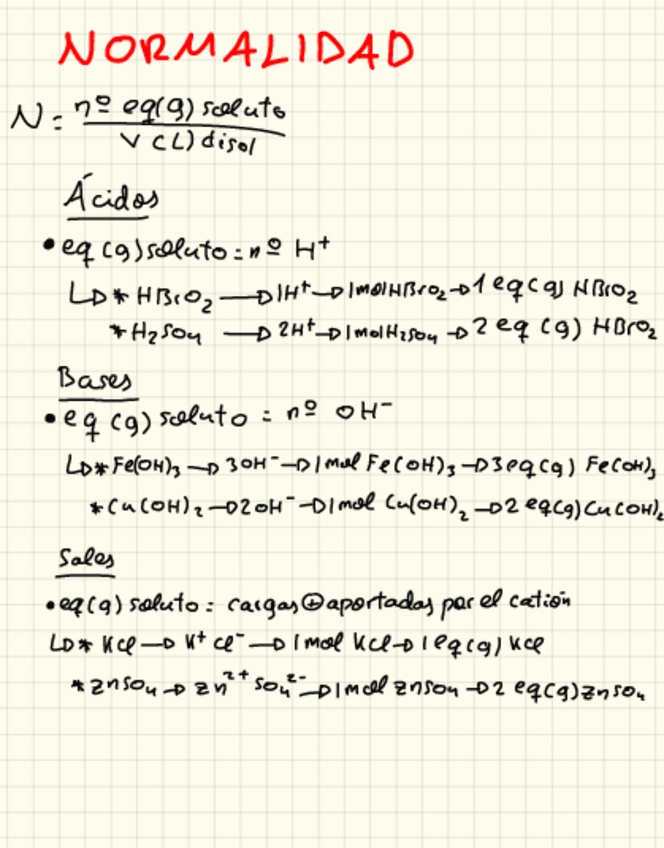 NORMALIDAD
N = nº eq(g) soluto
V (L) disol
Ácidos
• eq (g) soluto = nº H⁺
↳ * HBrO₂ → 1H⁺ → 1mol HBrO₂ → 1 eq(g) HBrO₂
* H₂SO₄ → 2H⁺ → 1mol H₂SO₄ → 2 eq (g) HBrO₂
Bases
• eq (g) soluto = nº OH⁻
↳ * Fe(OH)₃ → 3OH⁻ → 1mol Fe(OH)₃ → 3eq(g) Fe(OH)₃
* Cu(OH)₂ → 2OH⁻ → 1mol Cu(OH)₂ → 2 eq(g) Cu(OH)₂
Sales
• eq(g) soluto = cargas ⊕ aportadas por el catión
↳ * KCl → K⁺ Cl⁻ → 1mol KCl → 1eq(g) KCl
* ZnSO₄ → Zn²⁺ SO₄²⁻ → 1mol ZnSO₄ → 2 eq(g) ZnSO₄